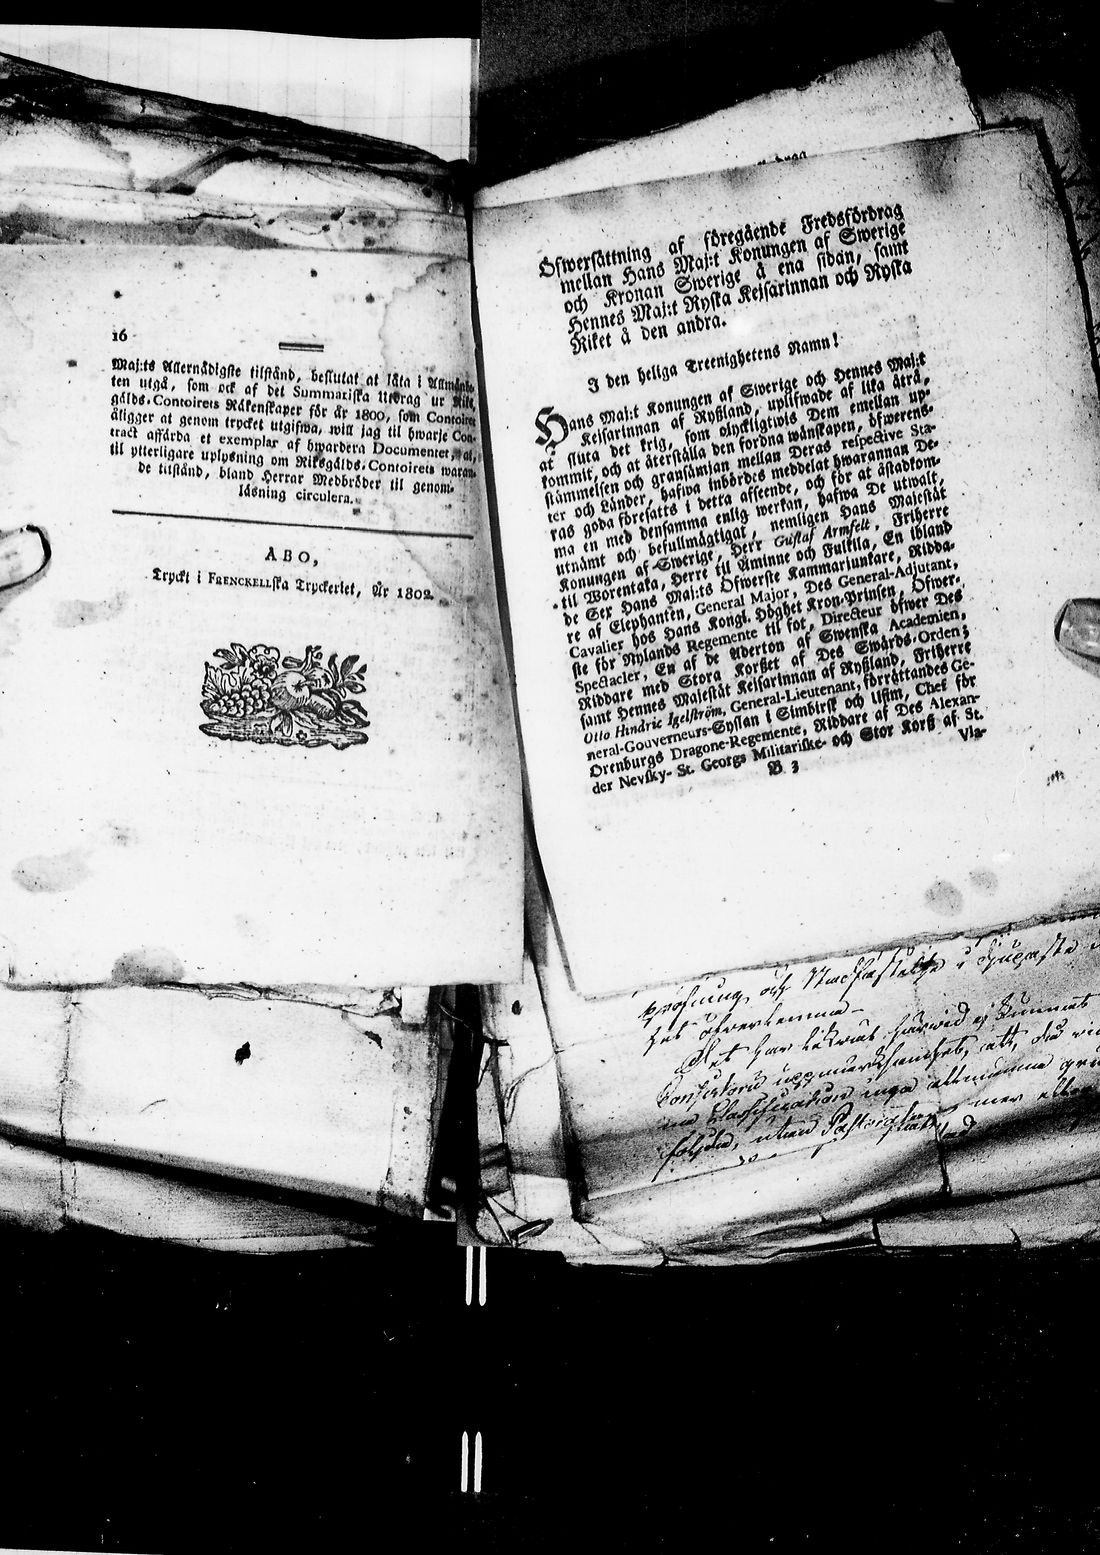 16
Maj:ts Allernådigste tilstånd, beslutat at låta i Allmänhe-
ten utgå, som ock af det Summariska Utdrag ur Riks-
gälds-Contoirets Räkenskaper för år 1800, som Contoiret
åligger at genom trycket utgifwa, will jag til hwarje Con-
tract affärda et exemplar af hwardera Documentet, at,
til ytterligare uplysning om Riksgälds-Contoirets waran-
de tilstånd, bland Herrar Medbröder til genom-
läsning circulera.
ÅBO,
Tryckt i FRENCKELLska Tryckeriet, År 1802.
Öfwersättning af föregående Fredsfördrag
mellan Hans Maj:t Konungen af Swerige
och Kronan Swerige å ena sidan, samt
Hennes Maj:t Ryska Kejsarinnan och Ryska
Riket å den andra.
I den heliga Treenighetens Namn!
Hans Maj:t Konungen af Swerige och Hennes Maj:t
Kejsarinnan af Ryßland, uplifwade af lika åtrå,
at sluta det krig, som olyckligtwis Dem emellan up-
kommit, och at återställa den fordna wänskapen, öfwerens-
stämmelsen och gransämjan mellan Deras respective Sta-
ter och Länder, hafwa inbördes meddelat hwarannan De-
ras goda föresatts i detta afseende, och för at åstadkom-
ma en med densamma enlig werkan, hafwa De utwalt,
utnämt och befullmägtigat, nemligen Hans Majestät
Konungen af Swerige, Herr Gustaf Armfelt, Friherre
til Worentaka, Herre til Åminne och Fulkila, En ibland
de Sex Hans Maj:ts Öfwerste Kammarjunkare, Ridda-
re af Elephanten, General Major, Des General-Adjutant,
Cavalier hos Hans Kongl. Höghet Kron-Prinsen, Öfwer-
ste för Nylands Regemente til fot, Directeur öfwer Des
Spectacler, En af de Aderton af Swenska Academien,
Riddare med Stora Korßet af Des Swärds-Orden;
samt Hennes Majestät Kejsarinnan af Ryßland, Friherre
Otto Hindric Igelström, General-Lieutenant, förrättandes Ge-
neral-Gouverneurs-Syslan i Simbirsk och Ufim, Chef för
Orenburgs Dragone-Regemente, Riddare af Des Alexan-
der Nevsky- St. Georgs Militariske- och Stor Korß af St.
B 3
Vla-
pröfning och Stadfästelse i djupaste
het öfverlemna.